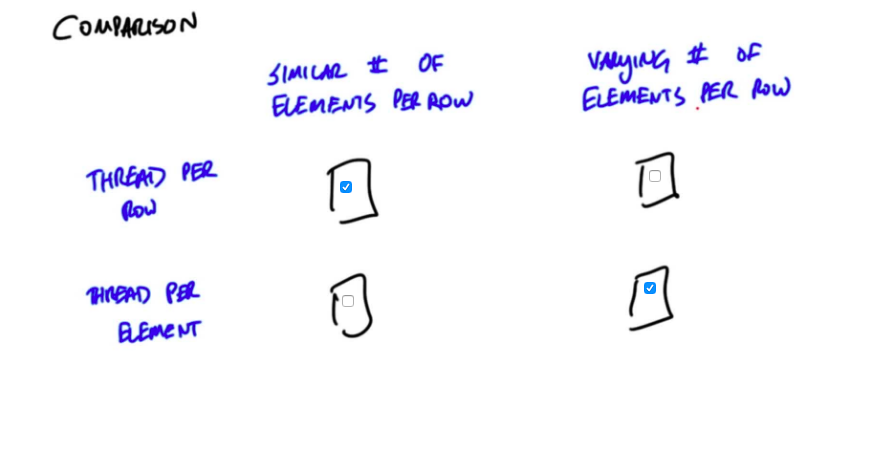 COMPARISON
SIMILAR # OF
ELEMENTS PER ROW
VARYING # OF
ELEMENTS PER ROW
THREAD PER
ROW
THREAD PER
ELEMENT